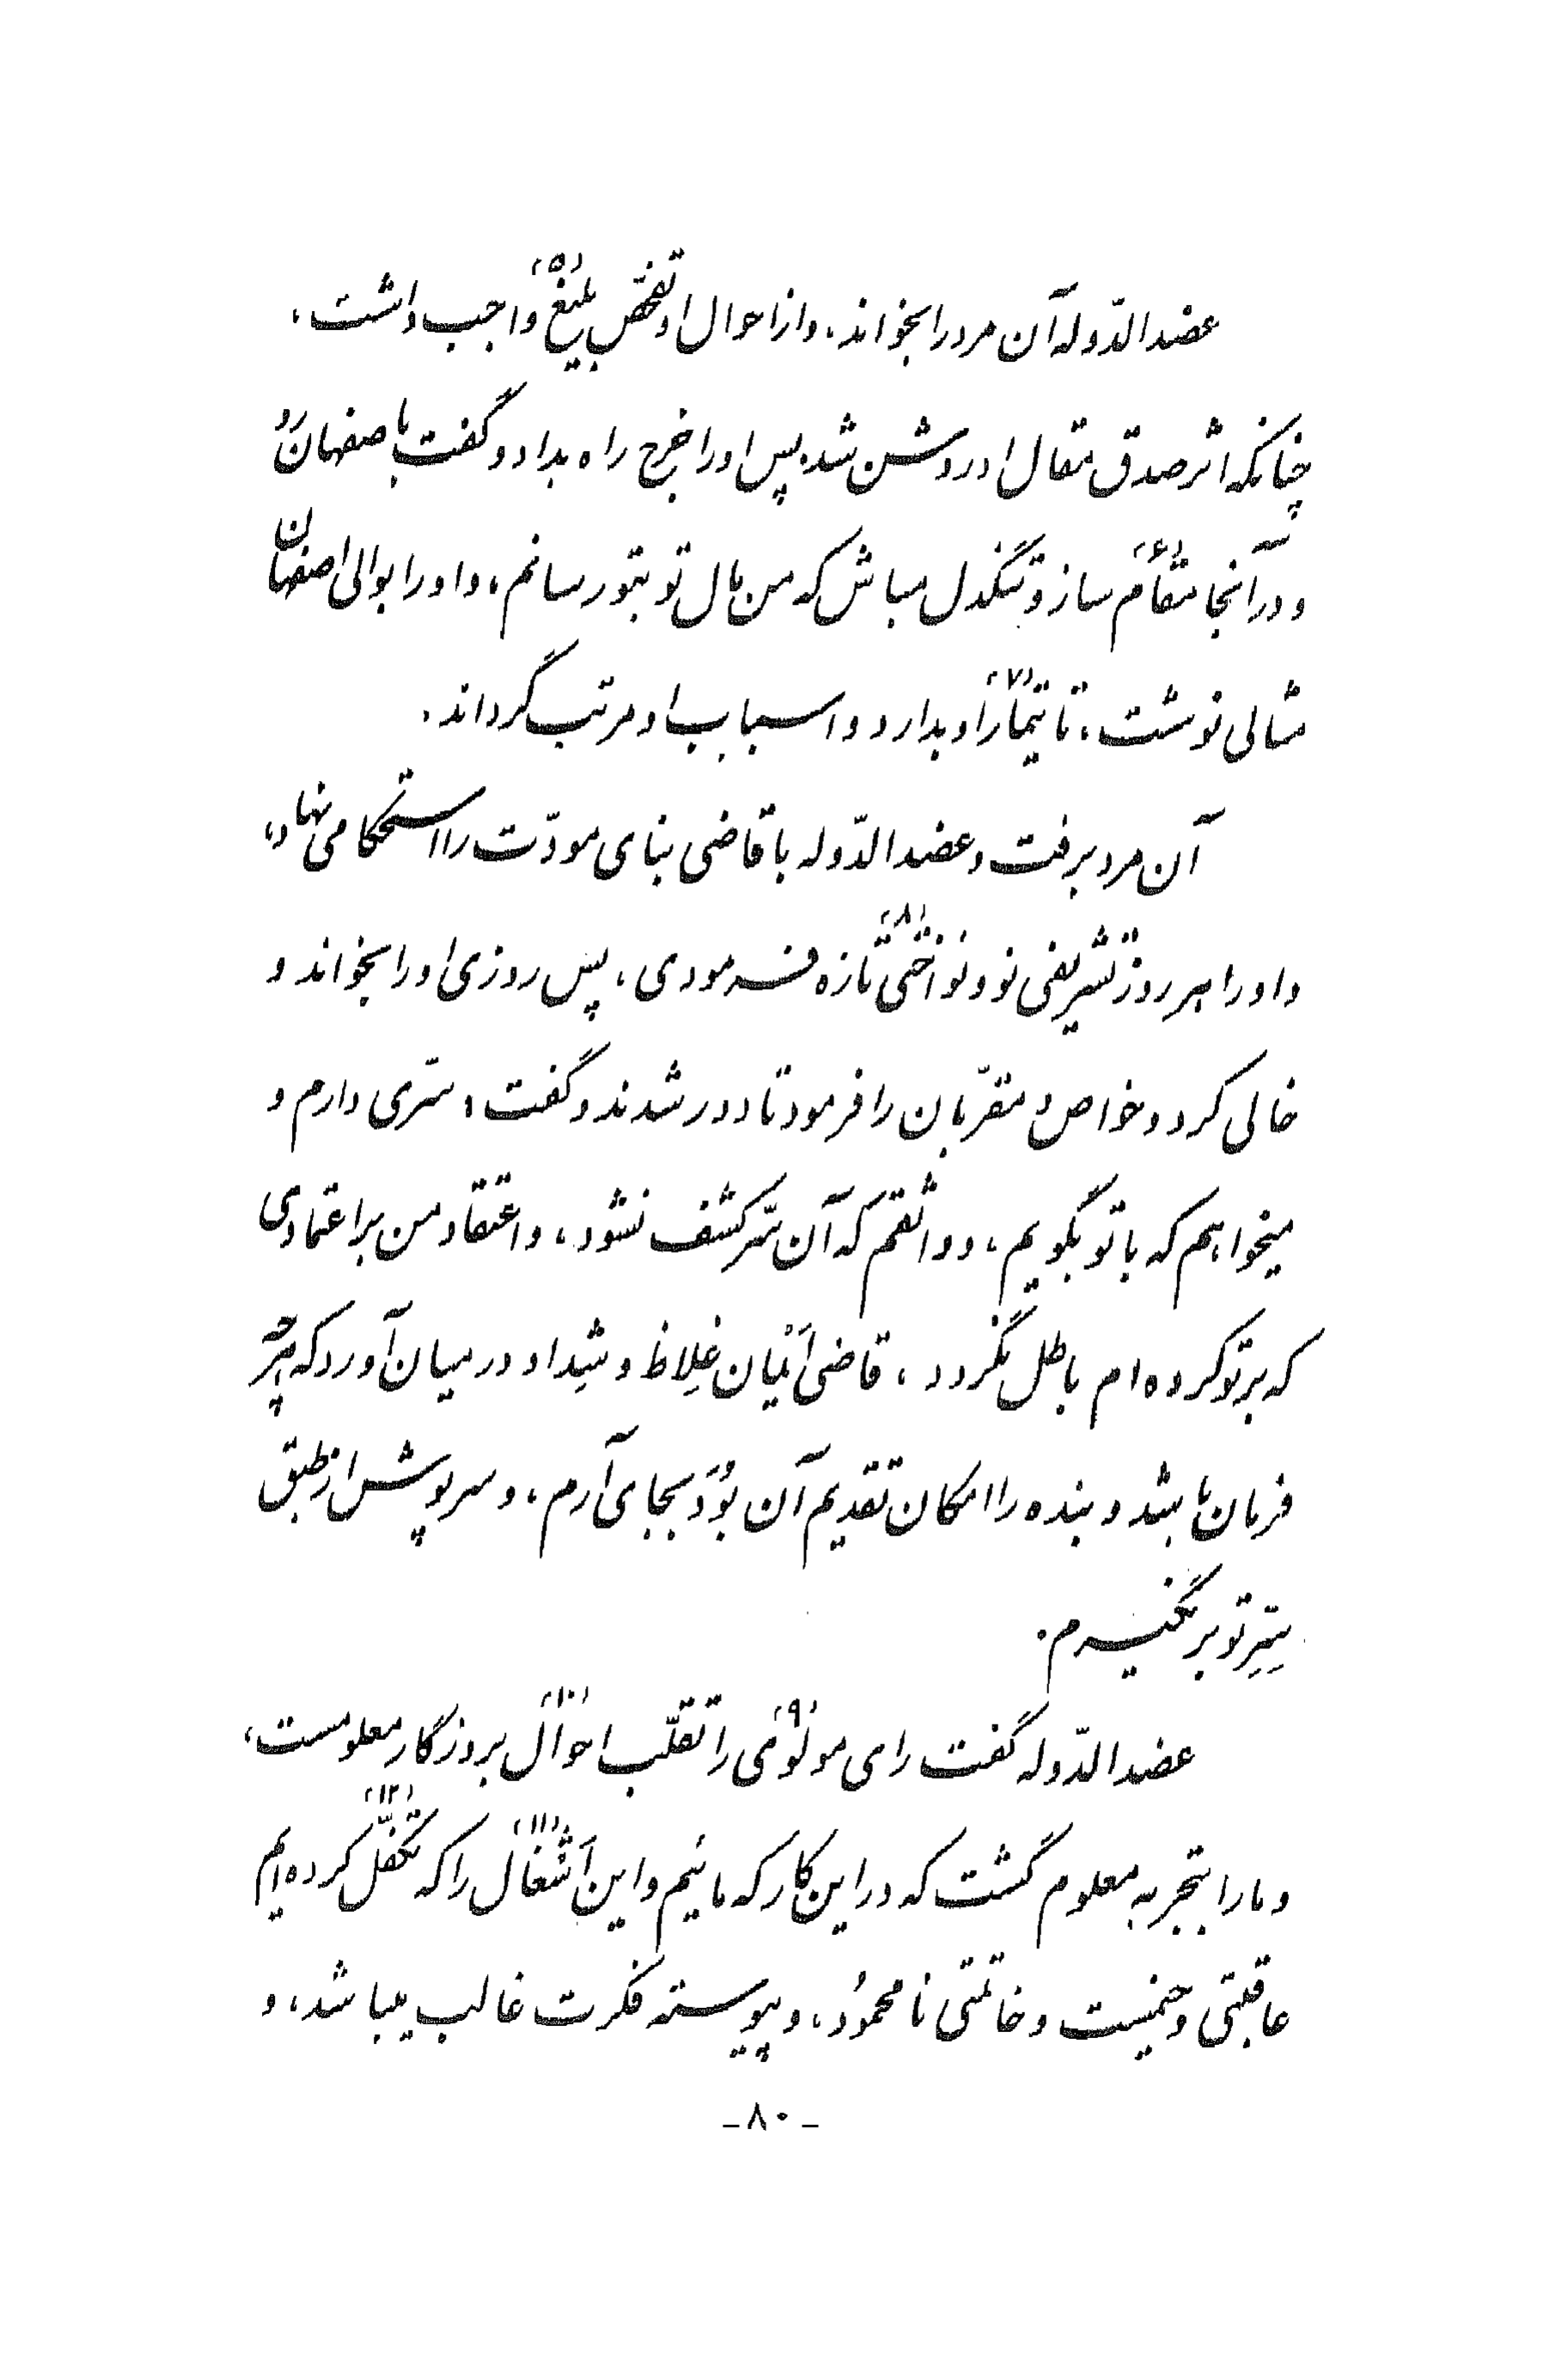 عضدالدّوله آن مرد را بخواند، و از احوال او تفحّص بلیغ (۵) واجب داشت،
چنانکه اثر صدق مقال او روشن شد. پس او را خرج راه بداد و گفت باصفهان رَوْ
و در آنجا مقام (۶) ساز و تنگدل مباش که من مال تو بتو رسانم، و او را بوالی اصفهان
مثالی نوشت، تا تیمار (۷) او بدارد و اسباب او مرتب گرداند.
آن مرد برفت و عضدالدّوله با قاضی بنای مودّت را استحکامی نهاد،
و او را هر روز تشریفی نو و نواختی (۸) تازه فرمودی، پس روزی او را بخواند و
خالی کرد و خواص و مقرّبان را فرمود تا دور شدند و گفت: سّری دارم و
میخواهم که با تو بگویم، و واثقم که آن سّر کشف نشود، و اعتقاد من بر اعتمادی
که بر تو کرده‌ام باطل نگردد، قاضی اَیْمان غِلاظ و شِداد در میان آورد که هرچه
فرمان باشد و بنده را امکان تقدیم آن بُوَد بجای آرم، و سرپوش از طبق
سِّرِ تو برنگیرم.
عضدالدّوله گفت رای مولوی (۹) را تقلّب احوال (۱۰) بروزگار معلومست،
و ما را بتجربه معلوم گشت که در این کار که مائیم و این اَشغال (۱۱) را که تکفّل (۱۲) کرده‌ایم
عاقبتی وخیمست و خاتمتی نامحمُود، و پیوسته فکرت غالب میباشد، و
ـ ۸۰ ـ